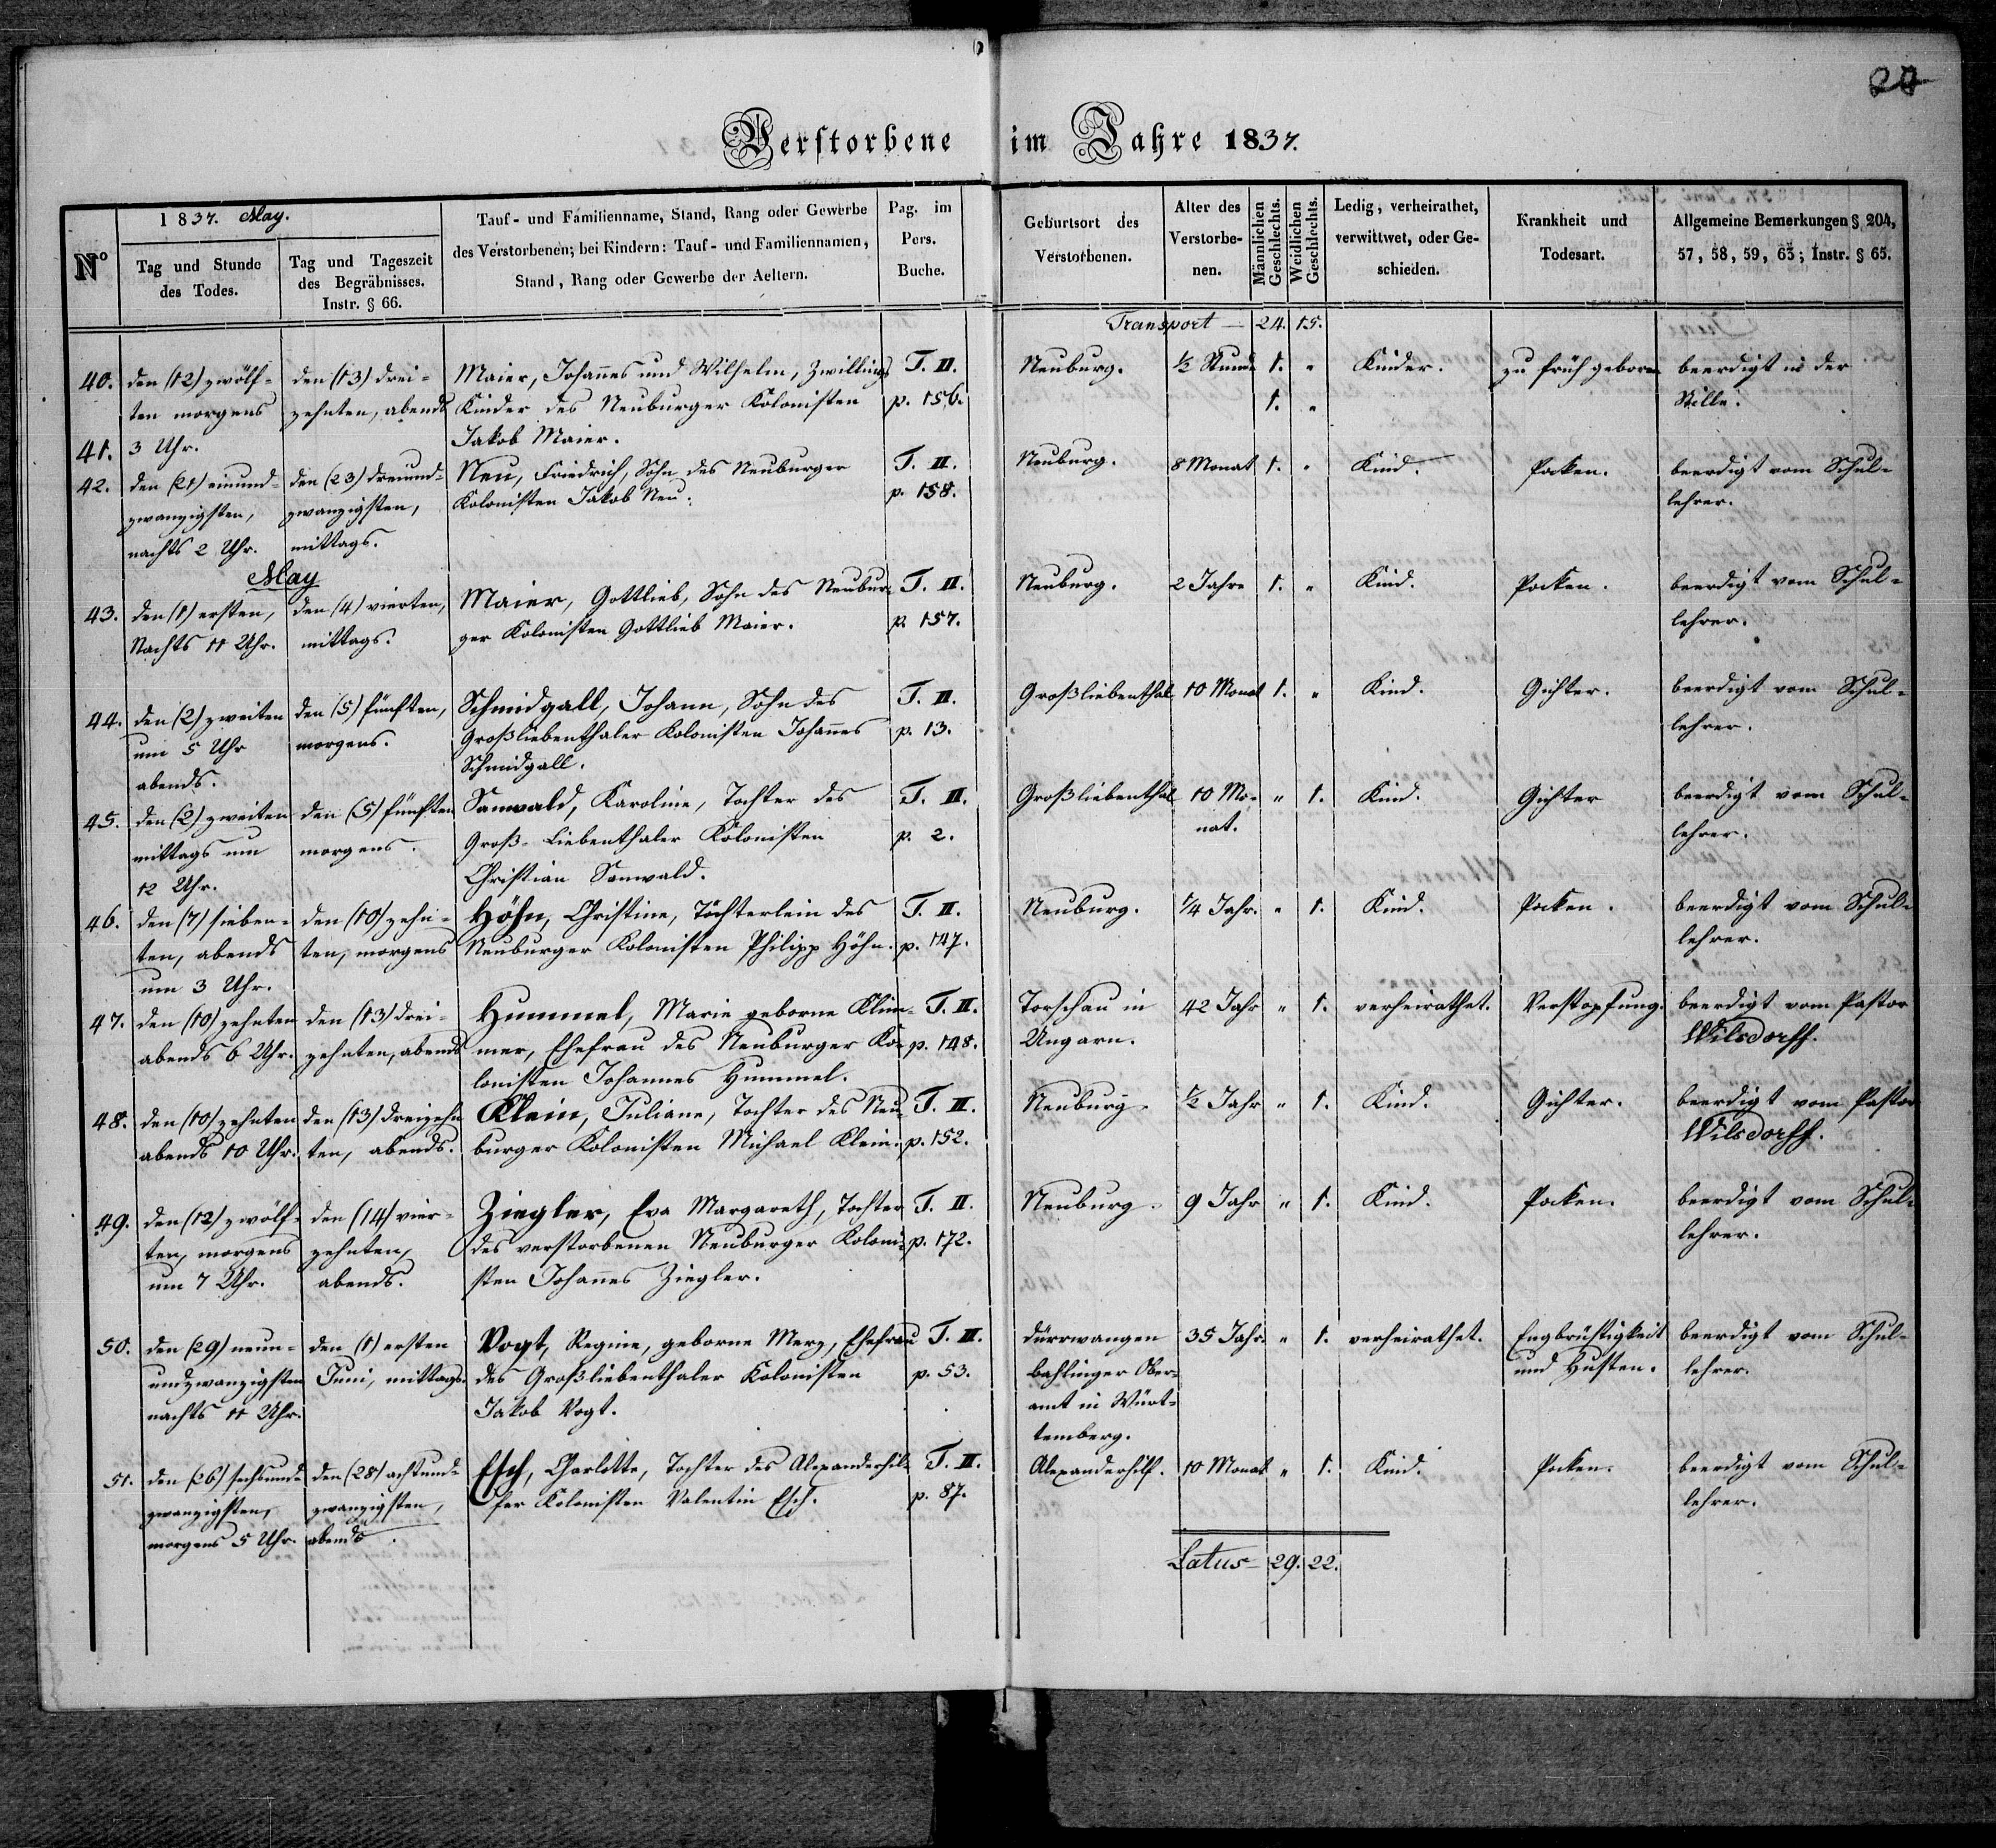 20
Verstorbene im Jahre 1837.
N°
1837. May.
Tag und Stunde
des Todes.
Tag und Tageszeit
des Begräbnisses.
Instr. § 66.
Tauf- und Familienname, Stand, Rang oder Gewerbe
des Verstorbenen; bei Kindern: Tauf- und Familiennamen,
Stand, Rang oder Gewerbe der Aeltern.
Pag. im
Pers.
Buche.
Geburtsort des
Verstorbenen.
Alter des
Verstorbe-
nen.
Männlichen
Geschlechts.
Weidlichen
Geschlechts.
Ledig, verheirathet,
verwittwet, oder Ge-
schieden.
Krankheit und
Todesart.
Allgemeine Bemerkungen § 204,
57, 58, 59, 63; Instr. § 65.
Transport — 24. 15.
40.
41.
den (12) zwölf-
ten morgens
3 Uhr.
den (13) drei-
zehnten, abends
Maier, Johannes und Wilhelm, Zwillings
Kinder des Neuburger Kolonisten
Jakob Maier.
T. II.
p. 156.
Neuburg.
½ Stunde
1. "
1. "
Kinder.
zu früh geboren
beerdigt in der
Stille.
42.
den (21) einund-
zwanzigsten,
nachts 2 Uhr.
den (23) dreiund-
zwanzigsten,
mittags.
Neu, Friedrich, Sohn des Neuburger
Kolonisten Jakob Neu.
T. II.
p. 158.
Neuburg.
8 Monat
1. "
Kind.
Pocken.
beerdigt vom Schul-
lehrer.
May
43.
den (1) ersten,
Nachts 11 Uhr.
den (4) vierten,
mittags.
Maier, Gottlieb, Sohn des Neubur-
ger Kolonisten Gottlieb Maier.
T. II.
p. 157.
Neuburg.
2 Jahre
1. "
Kind.
Pocken.
beerdigt vom Schul-
lehrer.
44.
den (2) zweiten
um 5 Uhr
abends.
den (5) fünften,
morgens.
Schmidgall, Johann, Sohn des
Großliebenthaler Kolonisten Johannes
Schmidgall.
T. II.
p. 13.
Großliebenthal
10 Monat
1. "
Kind.
Gichter.
beerdigt vom Schul-
lehrer.
45.
den (2) zweiten
mittags um
12 Uhr.
den (5) fünften
morgens.
Sanwald, Karoline, Tochter des
Groß-Liebenthaler Kolonisten
Christian Sanwald.
T. II.
p. 2.
Großliebenthal
10 Mo-
nat.
" 1.
Kind.
Gichter
beerdigt vom Schul-
lehrer.
46.
den (7) sieben-
ten, abends
um 3 Uhr.
den (10) zehn-
ten, morgens
Höhn, Christine, Töchterlein des
Neuburger Kolonisten Philipp Höhn.
T. II.
p. 147.
Neuburg.
¼ Jahr.
" 1.
Kind.
Pocken.
beerdigt vom Schul-
lehrer.
47.
den (10) zehnten
abends 6 Uhr.
den (13) drei-
zehnten, abends
Hummel, Marie geborne Klim-
mer, Ehefrau des Neuburger Ko-
lonisten Johannes Hummel.
T. II.
p. 148.
Torschau in
Ungarn.
42 Jahr
" 1.
verheirathet.
Verstopfung.
beerdigt vom Pastor
Wilsdorff.
48.
den (10) zehnten
abends 10 Uhr.
den (13) dreizehn
ten, abends.
Klein, Juliane, Tochter des Neu-
burger Kolonisten Michael Klein.
T. II.
p. 152.
Neuburg.
½ Jahr
" 1.
Kind.
Gichter.
beerdigt vom Pastor
Wilsdorff.
49.
den (12) zwölf-
ten, morgens
um 7 Uhr.
den (14) vier-
zehnten,
abends.
Ziegler, Eva Margareth, Tochter
des verstorbenen Neuburger Koloni-
sten Johannes Ziegler.
T. II.
p. 172.
Neuburg.
9 Jahr
" 1.
Kind.
Pocken.
beerdigt vom Schul-
lehrer.
50.
den (29) neun-
undzwanzigsten
nachts 11 Uhr.
den (1) ersten
Juni, mittags.
Vogt, Regine, geborne Merz, Ehefrau
des Großliebenthaler Kolonisten
Jakob Vogt.
T. II.
p. 53.
Dürrwangen
bahlinger Ober-
amt in Würt-
temberg.
35 Jahr.
" 1.
verheirathet.
Engbrüstigkeit
und Husten.
beerdigt vom Schul-
lehrer.
51.
den (26) sechsund-
zwanzigsten,
morgens 5 Uhr.
den (28) achtund-
zwanzigsten,
abends.
Esch, Charlotte, Tochter des Alexanderhil-
fer Kolonisten Valentin Esch.
T. II.
p. 87.
Alexanderhilf.
10 Monat
" 1.
Kind.
Pocken.
beerdigt vom Schul-
lehrer.
Latus — 29. 22.